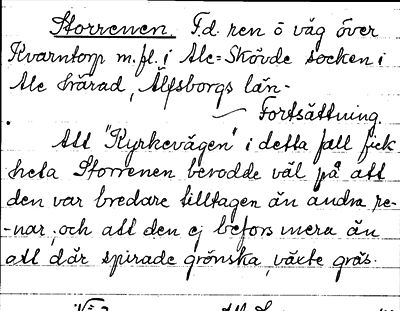 Storrenen. F.d. ren o väg över
Kvarntorp m.fl. i Ale=Skövde socken i
Ale härad, Älfsborgs län.
Fortsättning.
Att "Kyrkevägen" i detta fall fick
heta Storrenen berodde väl på att
den var bredare tilltagen än andra re-
-nar, och att den ej befors mera än
att där spirade grönska, växte gräs.